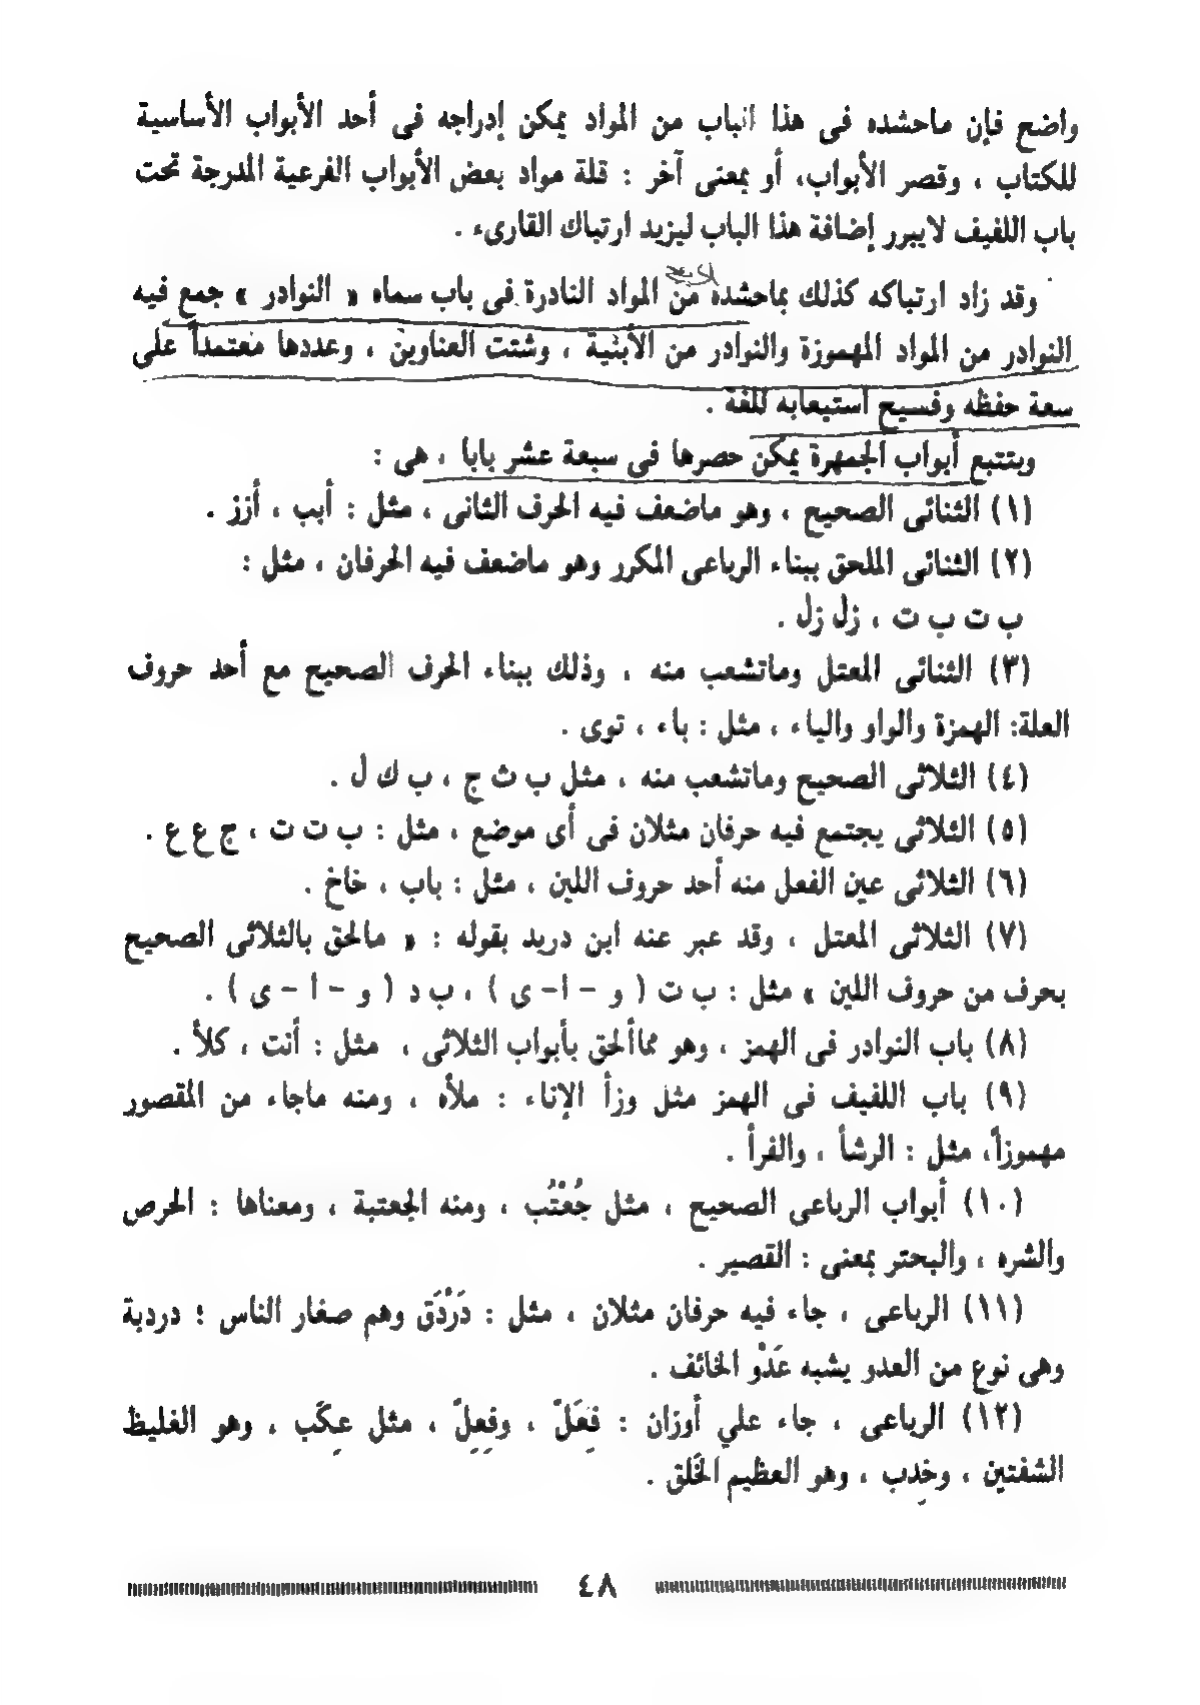 واضع فإن ماحشده فى هذا الباب من المواد يمكن إدراجه فى أحد الأبواب الأساسية
للكتاب ، وقصر الأبواب، أو بمعنى آخر : قلة مواد بعض الأبواب الفرعية المدرجة تحت
باب اللفيف لايبرر إضافة هذا الباب ليزيد ارتباك القارىء .
وقد زاد ارتباكه كذلك بماحشده من المواد النادرة فى باب سماه « النوادر » جمع فيه
النوادر من المواد المهموزة والنوادر من الأبنية ، وشتت العناوين ، وعددها معتمداً على
سعة حفظه وفسيح استيعابه للغة .
وبتتبع أبواب الجمهرة يمكن حصرها فى سبعة عشر بابا ، هى :
(١) الثنائى الصحيح ، وهو ماضعف فيه الحرف الثانى ، مثل : أبب ، أزز .
(٢) الثنائى الملحق ببناء الرباعى المكرر وهو ماضعف فيه الحرفان ، مثل :
ب ت ب ت ، زل زل .
(٣) الثنائى المعتل وماتشعب منه ، وذلك ببناء الحرف الصحيح مع أحد حروف
العلة: الهمزة والواو والياء ، مثل : باء ، توى .
(٤) الثلاثى الصحيح وماتشعب منه ، مثل ب ث ج ، ب ك ل .
(٥) الثلاثى يجتمع فيه حرفان مثلان فى أى موضع ، مثل : ب ت ت ، ج ع ع .
(٦) الثلاثى عين الفعل منه أحد حروف اللين ، مثل : باب ، خاخ .
(٧) الثلاثى المعتل ، وقد عبر عنه ابن دريد بقوله : « مالحق بالثلاثى الصحيح
بحرف من حروف اللين » مثل : ب ت ( و – ا– ى ) ، ب د ( و – أ – ى ) .
(٨) باب النوادر فى الهمز ، وهو مماألحق بأبواب الثلاثى ، مثل : أنت ، كلأ .
(٩) باب اللفيف فى الهمز مثل وزأ الإناء : ملأه ، ومنه ماجاء من المقصور
مهموزاً، مثل : الرشأ ، والفرأ .
(١٠) أبواب الرباعى الصحيح ، مثل جُعْتُب ، ومنه الجعتبة ، ومعناها : الحرص
والشره ، والبحتر بمعنى : القصير .
(١١) الرباعى ، جاء فيه حرفان مثلان ، مثل : دَرْدَق وهم صغار الناس ؛ دردبة
وهى نوع من العدو يشبه عَدْو الخائف .
(١٢) الرباعى ، جاء علي أوزان : فِعَلّ ، وفِعِلّ ، مثل عِكَب ، وهو الغليظ
الشفتين ، وخِدب ، وهو العظيم الخَلق .
٤٨